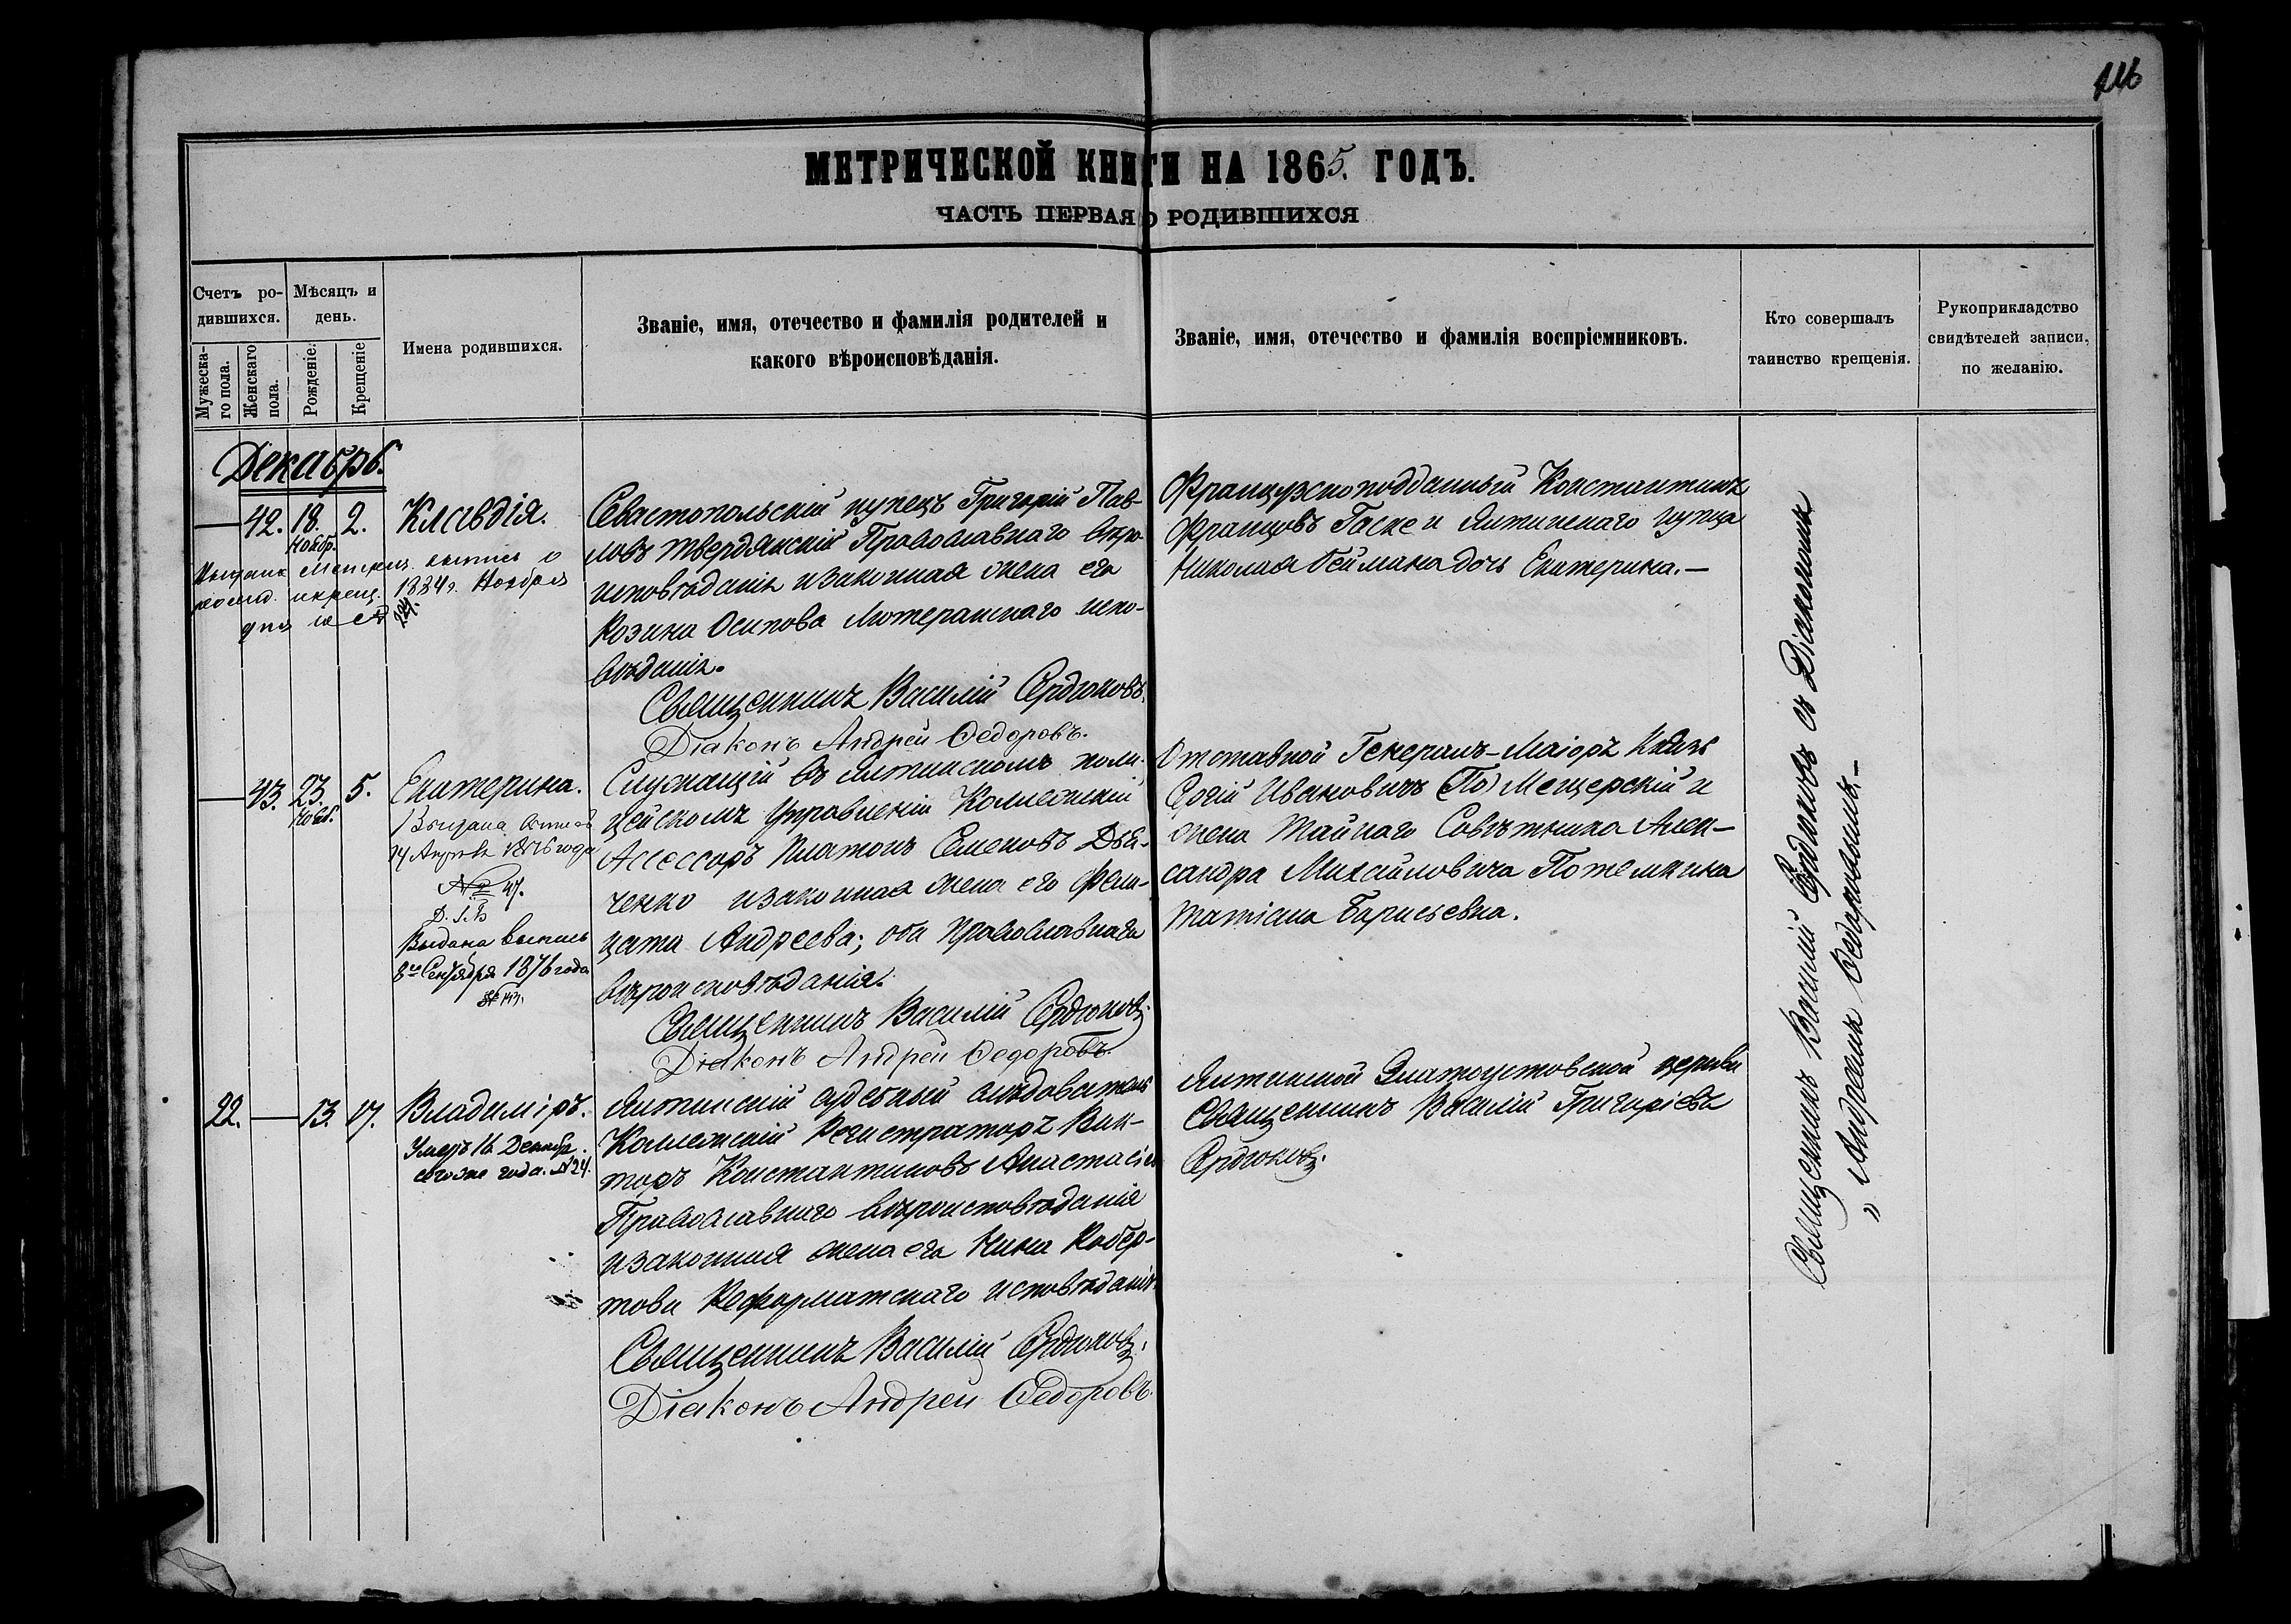 МЕТРИЧЕСКОЙ КНИГИ НА 1865. ГОДЪ.
ЧАСТЬ ПЕРВАЯ О РОДИВШИХСЯ
Счетъ ро-
дившихся.
Мужеска-
го пола.
Женскаго
пола.
Мѣсяцъ и
день.
Рожденіе.
Крещеніе
Имена родившихся.
Званіе, имя, отечество и фамилія родителей и
какого вѣроисповѣданія.
Званіе, имя, отечество и фамилія воспріемниковъ.
Кто совершалъ
таинство крещенія.
Рукоприкладство
свидѣтелей записи,
по желанію.
Декабрь.
42. 18. 2. Клавдія.
Нояб.
1884г. Ноября
Севастопольскій купецъ Григорій Пав-
ловъ Твердянскій Православнаго вѣро-
исповѣданія и законная жена его
Розина Осипова Лютеранскаго испо-
вѣданія.
Священникъ Василій Сердюковъ.
Діаконъ Андрей Ѳедоровъ.
Французскоподданный Константинъ
Францовъ Гаске и Ялтинскаго купца
Николая Геймана дочь Екатерина.—
43. 23. 5. Екатерина.
Нояб.
Выдана выпись
14 1876 года
№ 47.
Выдана выпись
8го Сентября 1876 года
Служащій въ Ялтинскомъ поли-
цейскомъ Управленіи Коллежскій
Ассессоръ Платонъ Семеновъ
ченко и законная жена его Фели-
цата Андреева; оба православнаго
вѣроисповѣданія.
Священникъ Василій Сердюковъ.
Діаконъ Андрей Ѳедоровъ.
Отставной Генералъ-Маіоръ Князь
Сергій Ивановичъ Мещерскій и
жена Тайнаго Совѣтника Алек-
сандра Михайловича Потемкина
Татіана Борисьевна.
22. — 13. 17. Владиміръ.
Умеръ 16 Декабр.
сего же года. №24.
Ялтинскій судебный слѣдователь
Коллежскій Регистраторъ Вик-
торъ Константиновъ Анастасіев
Православнаго вѣроисповѣданія
и законная жена его Нина Робер-
това Реформатскаго исповѣданія.
Священникъ Василій Сердюковъ.
Діаконъ Андрей Ѳедоровъ.
Ялтинской Златоустовской церкви
Священникъ Василій Григоріевъ
Сердюковъ.
Священникъ Василій Сердюковъ съ Діакономъ
„ Андреемъ Ѳедоровымъ.—